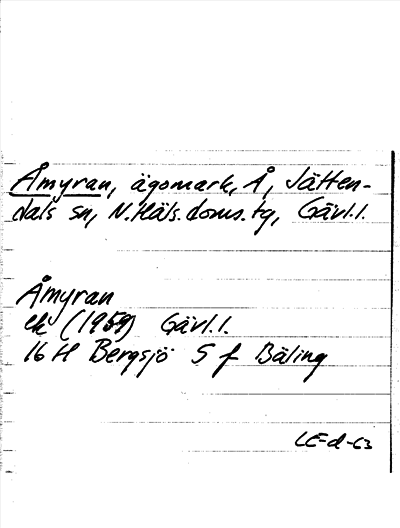 Åmyran, ägomark, Å, Jätten-
dals sn, N.Häls.doms.tg, Gävl.l.
Åmyran
ek (1959) Gävl.l.
16 H Bergsjö 5 f Bäling
LE-d-63